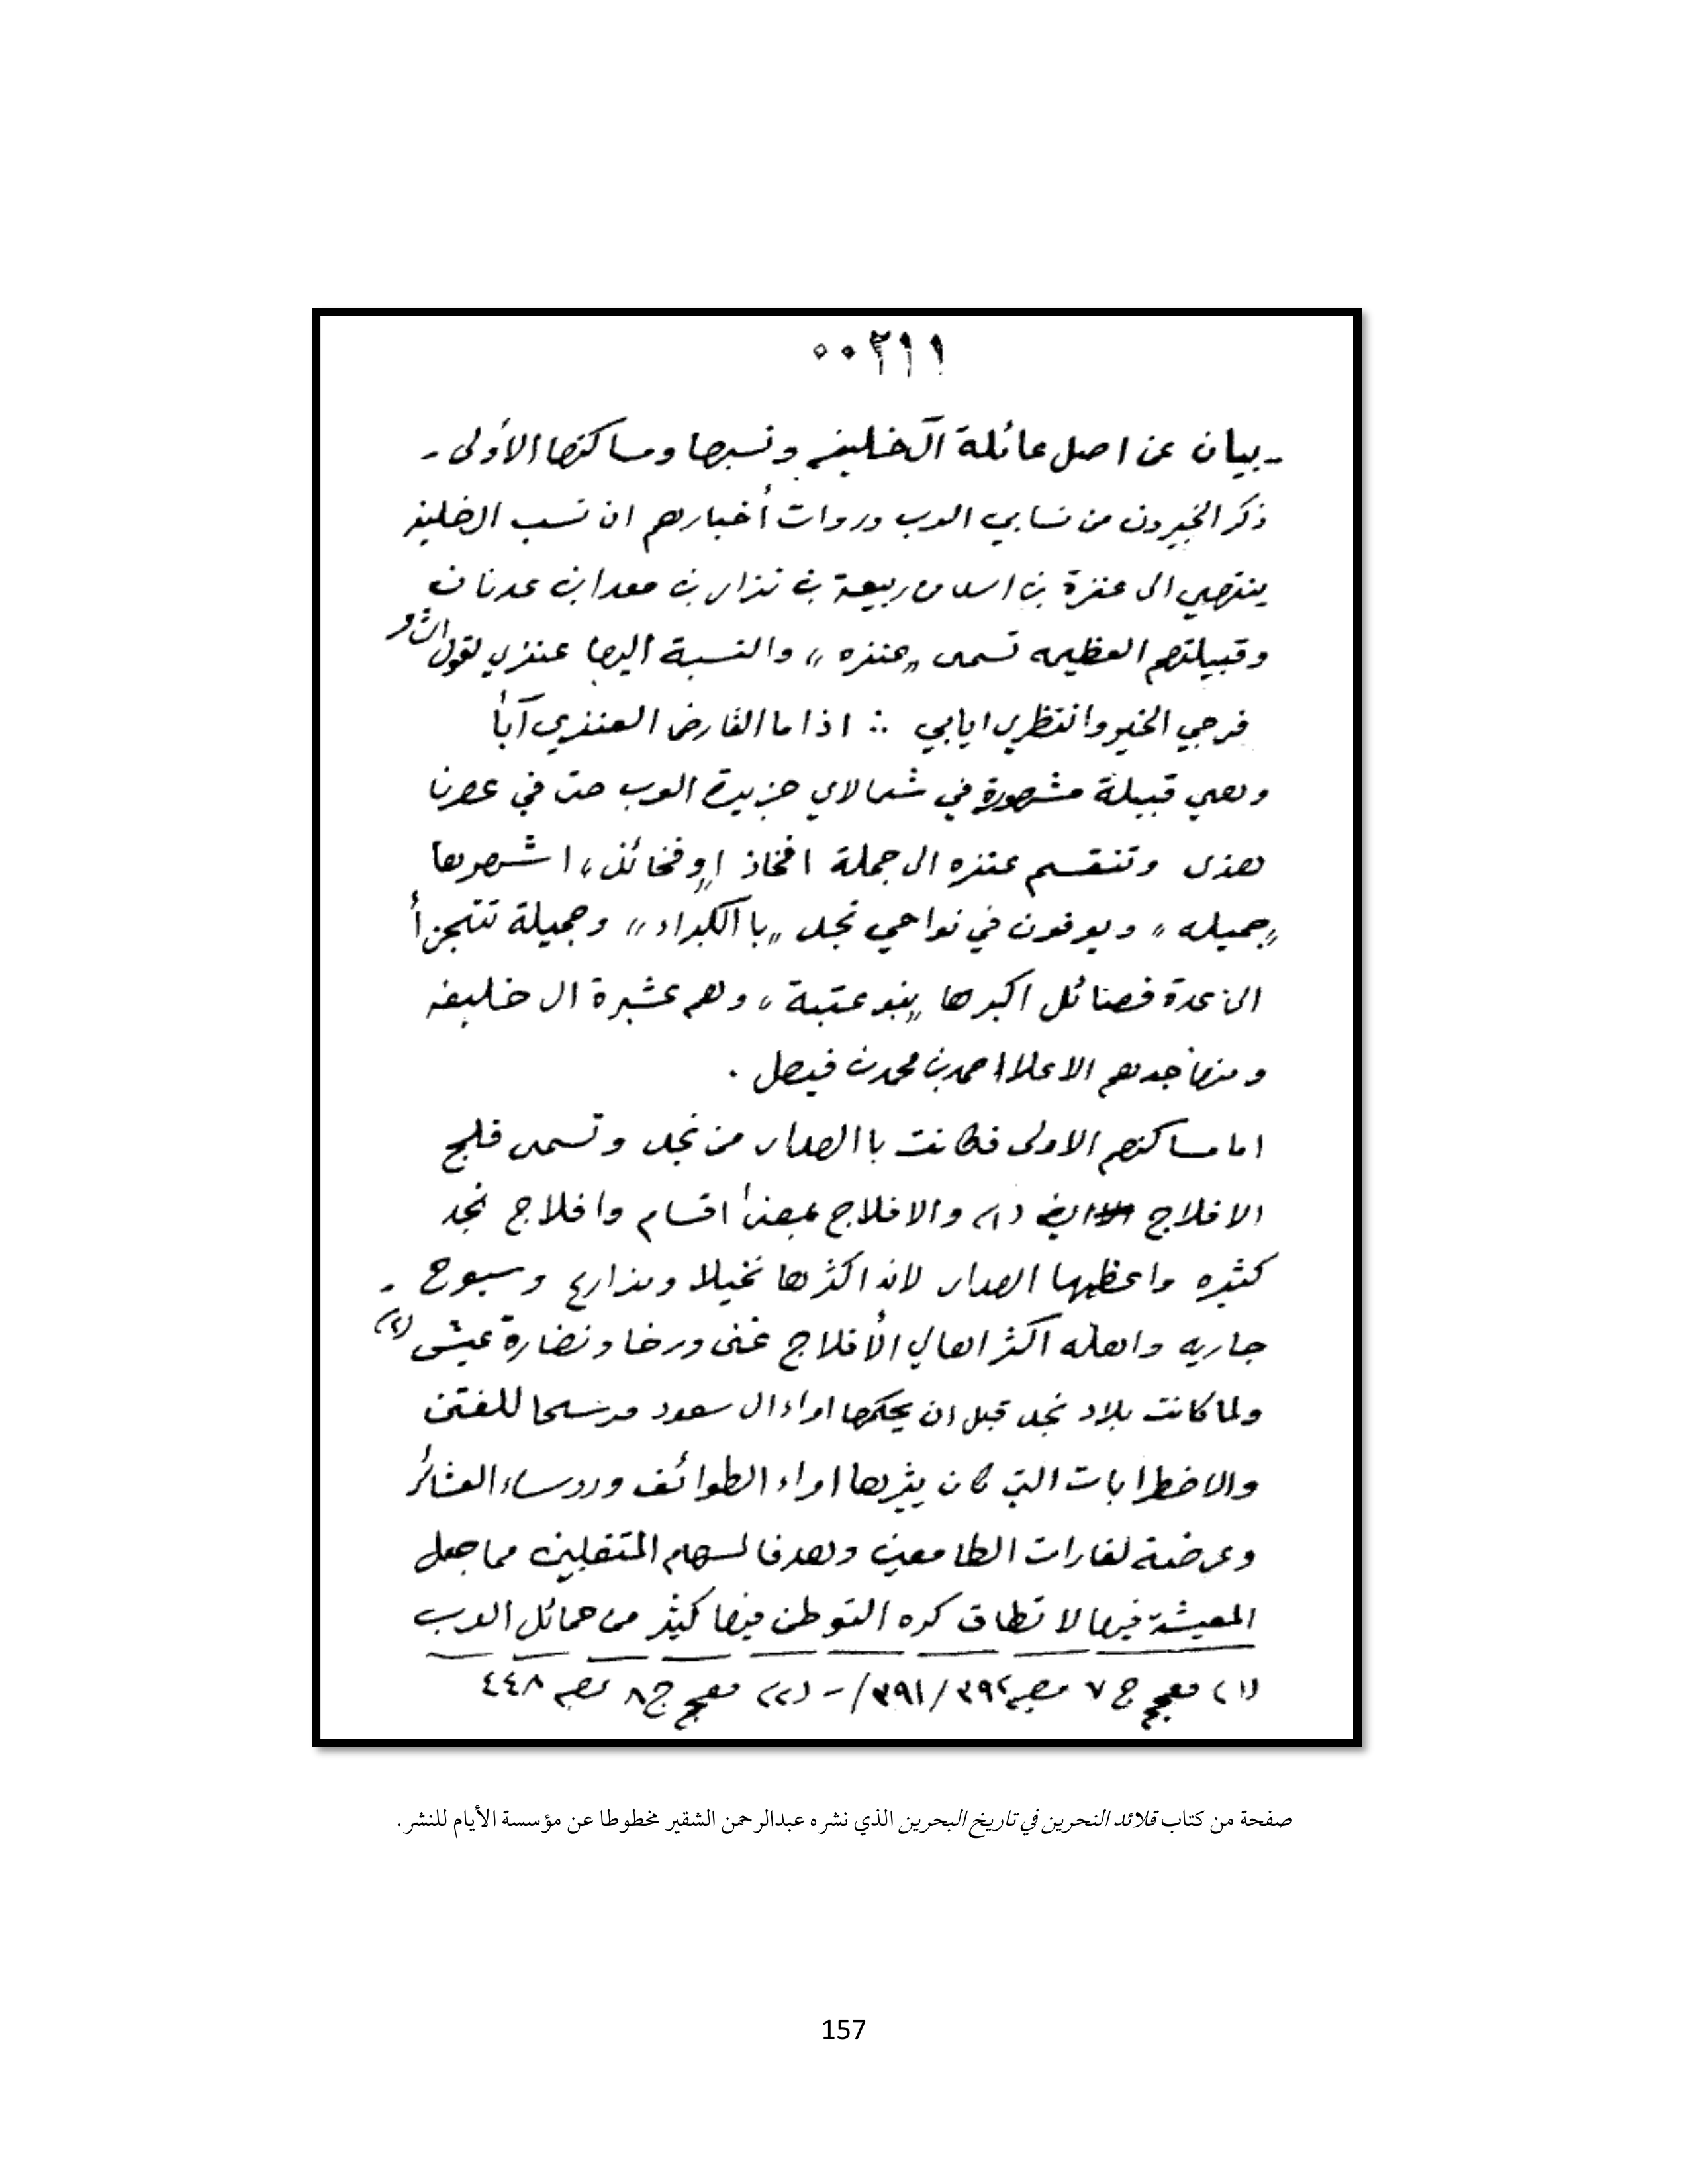 ٠٠٢١١
- بيان عن اصل عائلة آل خليفه ونسبها ومساكنها الأولى -
ذكر الخبيرون من نسابي العرب وروات أخبارهم ان نسب الخليفه
ينتهي الى عنزة بن اسد من ربيعة بن نزار بن معد ابن عدنان
وقبيلتهم العظيمه تسمى „عنزه“ والنسبة اليها عنزي لقول الشاعر
فرجي الخير وانتظري ايابي ∴ اذا ما القارض العنزي آبا
وهي قبيلة مشهورة في شمالاي جزيرة العرب حتى في عصرنا
هذى وتنقسم عنزه الى جملة افخاذ او فخائذ، اشهرها
„جميله“ ويعرفون في نواحي نجد „باالكبراء“ وجميلة تتجزأ
الى عدة فصائل اكبرها „بنو عتبة“ وهم عشيرة ال خليفه
ومنها جدهم الاعلا احمد بن محمد بن فيصل .
اما مساكنهم الاولى فكانت باالهدار من نجد وتسمى فلج
الافلاج ايضا (١) والافلاج بمعنى اقسام وافلاج نجد
كثيره واعظمها الهدار لانه اكثرها نخيلا ومزارع وسيوح -
جاريه واهله اكثر اهالي الأفلاج غنى ورخا ونضارة عيش (٢)
ولما كانت بلاد نجد قبل ان يحكمها امراء ال سعود مرسحا للفتن
والاضطرابات التي كان يثيرها امراء الطوائف وروساء العشائر
وعرضة لغارات الطامعين وهدفا لسهام المتغلبين مما جعل
المعيشة فيها لا تطاق كره التوطن فيها كثير من حمائل العرب
(١) معجم ج ٧ صح ٣٩٢/٣٩١/- (٢) معجم ج ٨ صح ٤٤٨
صفحة من كتاب قلائد النحرين في تاريخ البحرين الذي نشره عبدالرحمن الشقير مخطوطا عن مؤسسة الأيام للنشر.
157